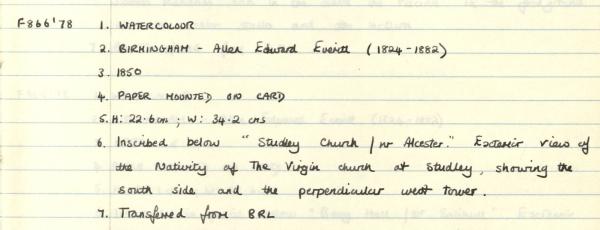 F866'78 1. WATERCOLOUR
2. BIRMINGHAM - Allen Edward Everitt (1824-1882)
3. 1850
4. PAPER MOUNTED ON CARD
5. H: 22.6cm ; W: 34.2 cms
6. Inscribed below "Studley Church / nr Alcester." Exterior view of
the Nativity of The Virgin church at Studley, showing the
south side and the perpendicular west tower.
7. Transferred from BRL